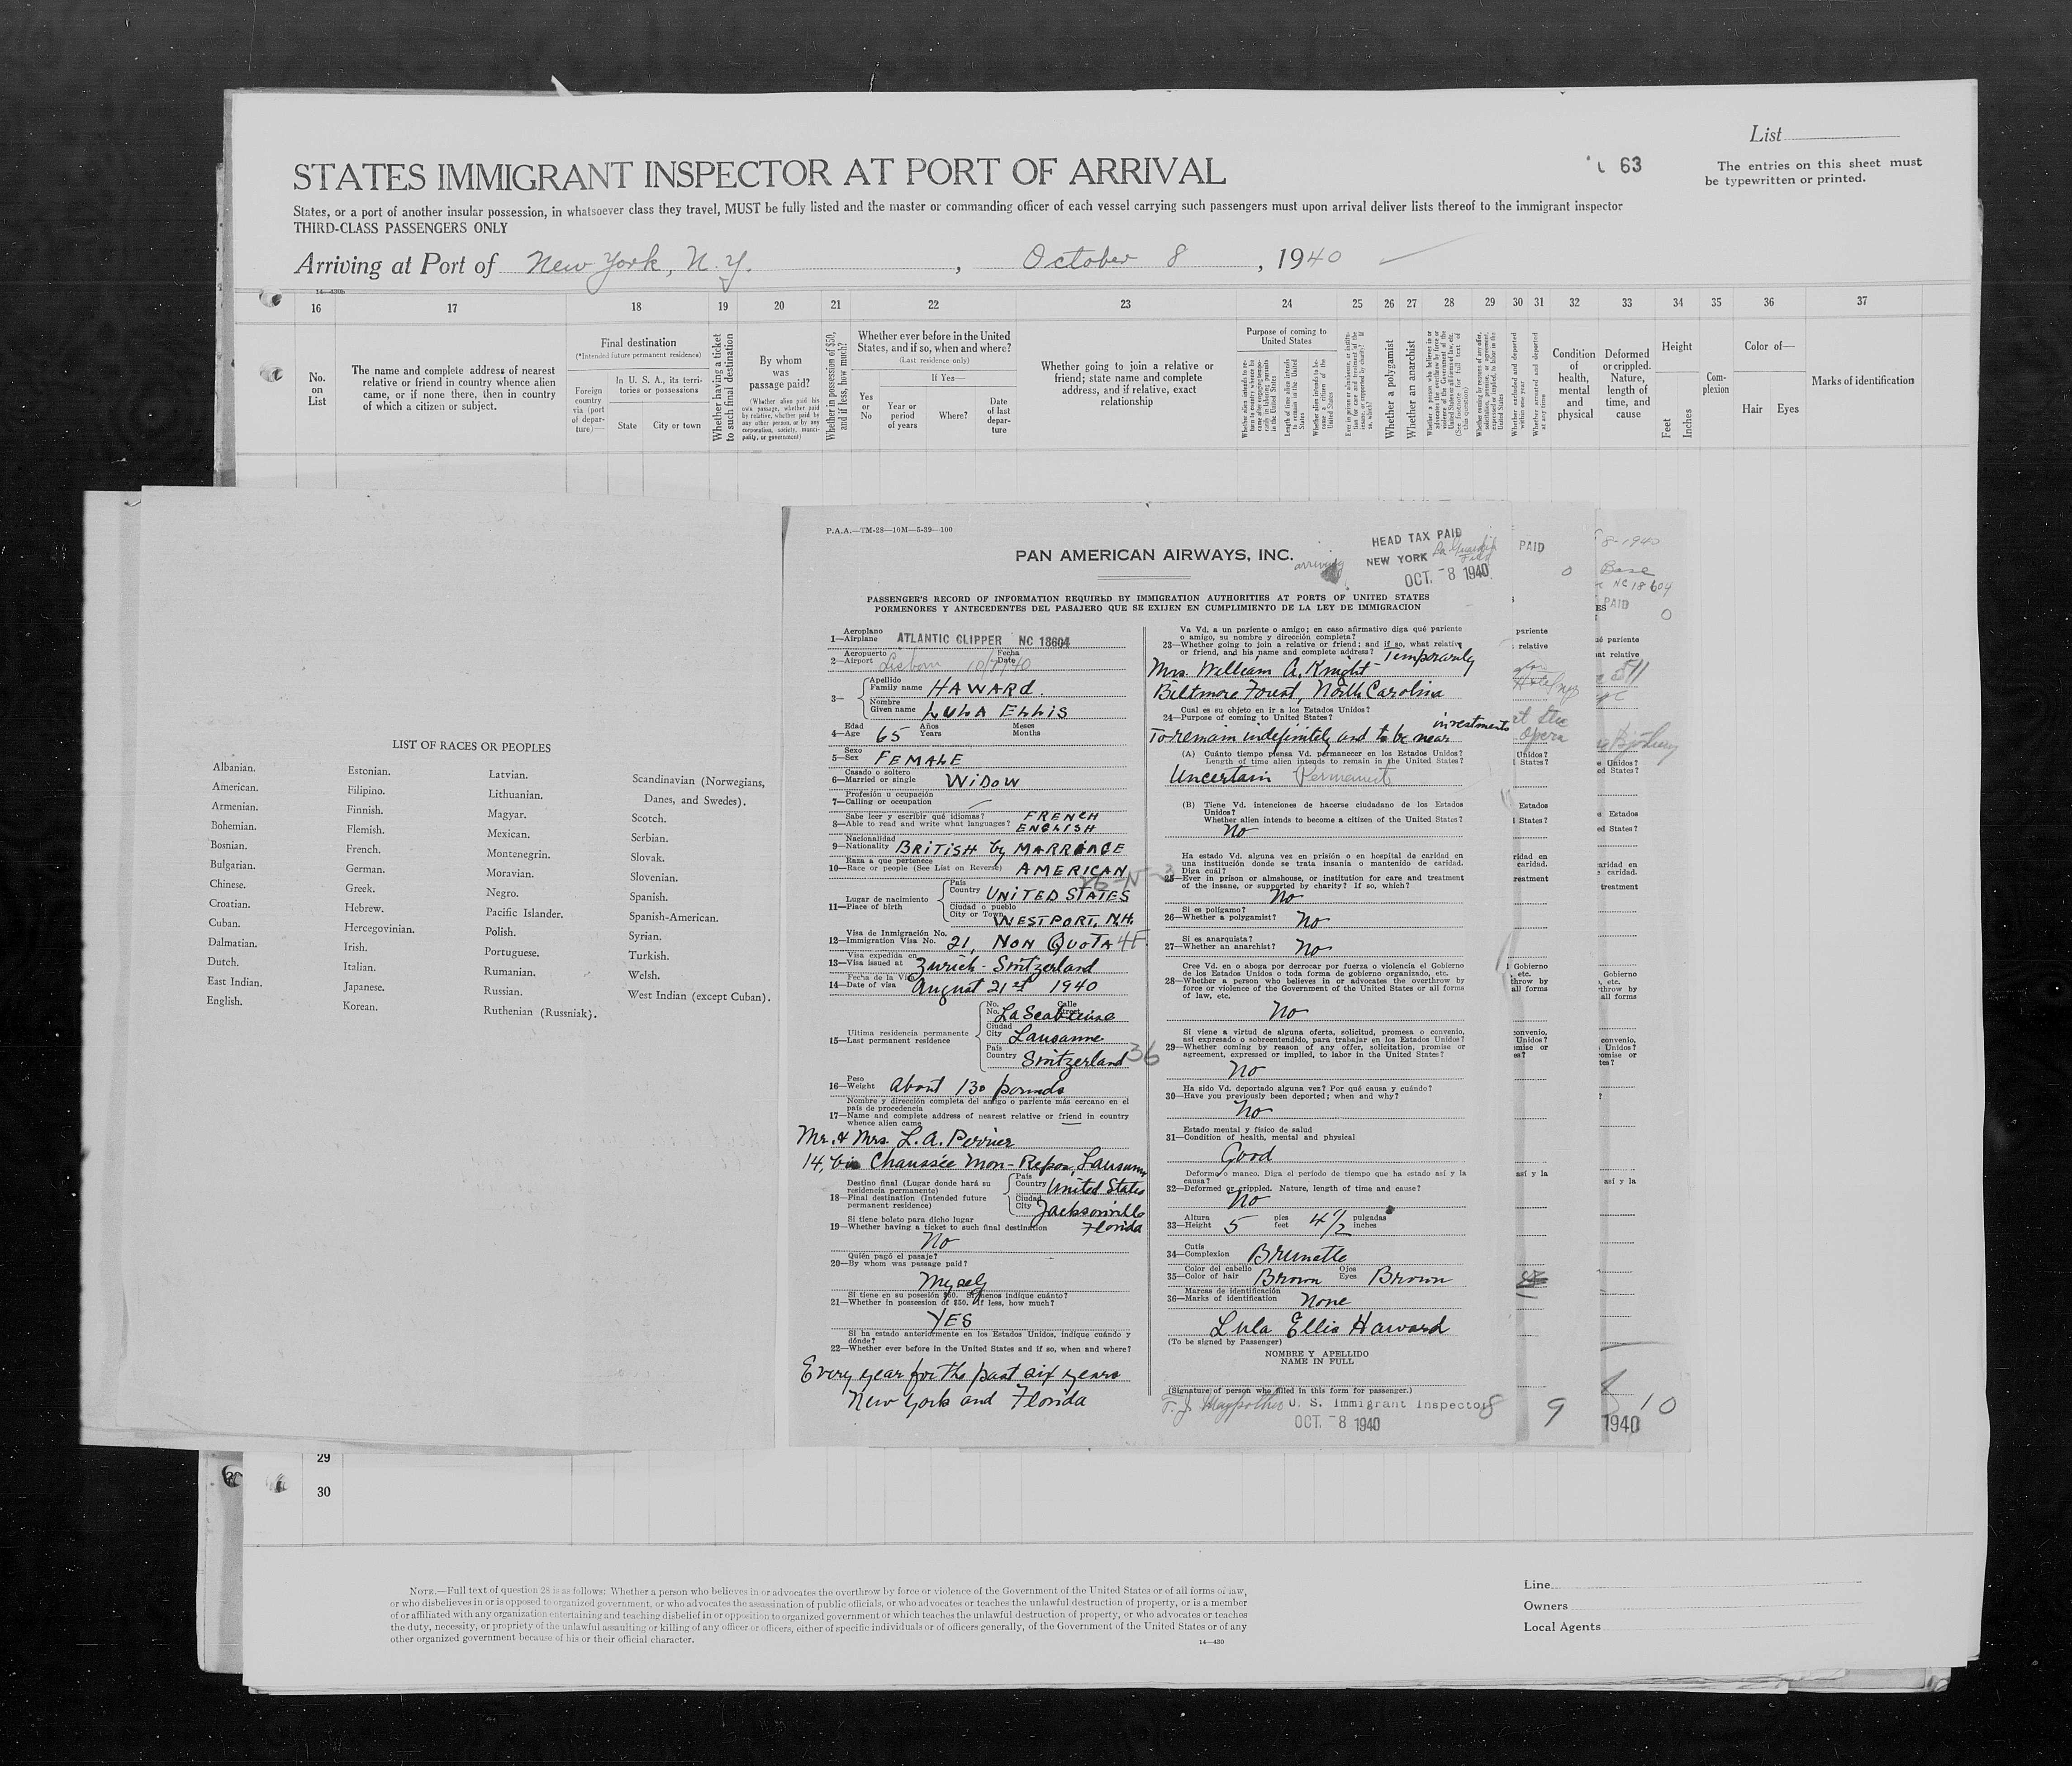 List
STATES IMMIGRANT INSPECTOR AT PORT OF ARRIVAL
63
The entries on this sheet must
be typewritten or printed.
States, or a port of another insular possession, in whatsoever class they travel, MUST be fully listed and the master or commanding officer of each vessel carrying such passengers must upon arrival deliver lists thereof to the immigrant inspector
THIRD-CLASS PASSENGERS ONLY
Arriving at Port of New York, N.Y. , October 8 , 1940
14—430b
16 17 18 19 20 21 22 23 24 25 26 27 28 29 30 31 32 33 34 35 36 37
No.
on
List
The name and complete address of nearest
relative or friend in country whence alien
came, or if none there, then in country
of which a citizen or subject.
Final destination
(*Intended future permanent residence)
Foreign
country
via (port
of depar-
ture)—
In U. S. A., its terri-
tories or possessions
State
City or town
Whether having a ticket
to such final destination
By whom
was
passage paid?
(Whether alien paid his
own passage, whether paid
by relative, whether paid by
any other person, or by any
corporation, society, munici-
pality, or government)
Whether in possession of $50,
and if less, how much?
Whether ever before in the United
States, and if so, when and where?
(Last residence only)
If Yes—
Yes
or
No
Year or
period
of years
Where?
Date
of last
depar-
ture
Whether going to join a relative or
friend; state name and complete
address, and if relative, exact
relationship
Purpose of coming to
United States
Length of time alien intends
to remain in the United
States
Whether alien intends to be-
come a citizen of the
United States
Whether a polygamist
Whether an anarchist
Whether arrested and deported
at any time
Condition
of
health,
mental
and
physical
Deformed
or crippled.
Nature,
length of
time, and
cause
Height
Feet
Inches
Com-
plexion
Color of—
Hair
Eyes
Marks of identification
LIST OF RACES OR PEOPLES
Albanian.
American.
Armenian.
Bohemian.
Bosnian.
Bulgarian.
Chinese.
Croatian.
Cuban.
Dalmatian.
Dutch.
East Indian.
English.
Estonian.
Filipino.
Finnish.
Flemish.
French.
German.
Greek.
Hebrew.
Hercegovinian.
Irish.
Italian.
Japanese.
Korean.
Latvian.
Lithuanian.
Magyar.
Mexican.
Montenegrin.
Moravian.
Negro.
Pacific Islander.
Polish.
Portuguese.
Rumanian.
Russian.
Ruthenian (Russniak).
Scandinavian (Norwegians,
Danes, and Swedes).
Scotch.
Serbian.
Slovak.
Slovenian.
Spanish.
Spanish-American.
Syrian.
Turkish.
Welsh.
West Indian (except Cuban).
P.A.A.—TM-28—10M—5-39—100
PAN AMERICAN AIRWAYS, INC.
arriving
HEAD TAX PAID
NEW YORK La Guardia Field
OCT. -8 1940
PASSENGER'S RECORD OF INFORMATION REQUIRED BY IMMIGRATION AUTHORITIES AT PORTS OF UNITED STATES
PORMENORES Y ANTECEDENTES DEL PASAJERO QUE SE EXIJEN EN CUMPLIMIENTO DE LA LEY DE IMMIGRACION
Aeroplano
1—Airplane ATLANTIC CLIPPER NC 18604
Aeropuerto Fecha
2—Airport Lisbon Date 10/7/40
Apellido
3— Family name HAWARD.
Nombre
Given name LULA ELLIS
Edad Años Meses
4—Age 65 Years Months
Sexo
5—Sex FEMALE
Casado o soltero
6—Married or single WIDOW
Profesión u ocupación
7—Calling or occupation
Sabe leer y escribir qué idiomas? FRENCH
8—Able to read and write what languages? ENGLISH
Nacionalidad
9—Nationality BRITISH by MARRIAGE
Raza a que pertenece
10—Race or people (See List on Reverse) AMERICAN
País
Country UNITED STATES
Lugar de nacimiento
11—Place of birth
Ciudad o pueblo
City or Town WESTPORT, N.H.
Visa de Inmigración No.
12—Immigration Visa No. 21, NON QUOTA 4F
Visa expedida en
13—Visa issued at Zurich - Switzerland
Fecha de la Visa
14—Date of visa August 21st 1940
No. Calle
No. Street
Ultima residencia permanente
15—Last permanent residence
Ciudad
City Lausanne
País
Country Switzerland 36
Peso
16—Weight about 130 pounds
Nombre y dirección completa del amigo o pariente más cercano en el
país de procedencia
17—Name and complete address of nearest relative or friend in country
whence alien came
Mr. & Mrs. L. A. Perrier
14, bis Chaussée Mon-Repos, Lausanne
Destino final (Lugar donde hará su
residencia permanente)
18—Final destination (Intended future
permanent residence)
País
Country United States
Ciudad
City Jacksonville
Florida
Si tiene boleto para dicho lugar
19—Whether having a ticket to such final destination
No
Quién pagó el pasaje?
20—By whom was passage paid?
Myself
Si tiene en su posesión $50. Si menos indique cuánto?
21—Whether in possession of $50. If less, how much?
YES
Si ha estado anteriormente en los Estados Unidos, indique cuándo y
dónde?
22—Whether ever before in the United States and if so, when and where?
Every year for the past six years
New York and Florida
Va Vd. a un pariente o amigo; en caso afirmativo diga qué pariente
o amigo, su nombre y dirección completa?
23—Whether going to join a relative or friend; and if so, what relative
or friend, and his name and complete address?
Mrs. William A. Knight - Temporarily
Biltmore Forest, North Carolina
Cual es su objeto en ir a los Estados Unidos?
24—Purpose of coming to United States?
To remain indefinitely and to be near investments
(A) Cuánto tiempo piensa Vd. permanecer en los Estados Unidos?
Length of time alien intends to remain in the United States?
Uncertain Permanent
(B) Tiene Vd. intenciones de hacerse ciudadano de los Estados
Unidos?
Whether alien intends to become a citizen of the United States?
No
Ha estado Vd. alguna vez en prisión o en hospital de caridad en
una institución donde se trata insania o mantenido de caridad.
Diga cuál?
25—Ever in prison or almshouse, or institution for care and treatment
of the insane, or supported by charity? If so, which?
No
Si es polígamo?
26—Whether a polygamist? No
Si es anarquista?
27—Whether an anarchist? No
Cree Vd. en o aboga por derrocar por fuerza o violencia el Gobierno
de los Estados Unidos o toda forma de gobierno organizado, etc.
28—Whether a person who believes in or advocates the overthrow by
force or violence of the Government of the United States or all forms
of law, etc.
No
Si viene a virtud de alguna oferta, solicitud, promesa o convenio,
así expresado o sobreentendido, para trabajar en los Estados Unidos?
29—Whether coming by reason of any offer, solicitation, promise or
agreement, expressed or implied, to labor in the United States?
No
Ha sido Vd. deportado alguna vez? Por qué causa y cuándo?
30—Have you previously been deported; when and why?
No
Estado mental y físico de salud
31—Condition of health, mental and physical
Good
Deformo o manco. Diga el período de tiempo que ha estado así y la
causa?
32—Deformed or crippled. Nature, length of time and cause?
No
Altura pies pulgadas
33—Height 5 feet 4 1/2 inches
Cutis
34—Complexion Brunette
Color del cabello Ojos
35—Color of hair Brown Eyes Brown
Marcas de identificación
36—Marks of identification None
Lula Ellis Haward
(To be signed by Passenger)
NOMBRE Y APELLIDO
NAME IN FULL
(Signature of person who filled in this form for passenger.)
U. S. Immigrant Inspector 8
OCT. -8 1940
PAID
9
8-1940
Base
NC 18604
PAID
1940
10
29
30
NOTE.—Full text of question 28 is as follows: Whether a person who believes in or advocates the overthrow by force or violence of the Government of the United States or of all forms of law,
or who disbelieves in or is opposed to organized government, or who advocates the assassination of public officials, or who advocates or teaches the unlawful destruction of property, or is a member
of or affiliated with any organization entertaining and teaching disbelief in or opposition to organized government or which teaches the unlawful destruction of property, or who advocates or teaches
the duty, necessity, or propriety of the unlawful assaulting or killing of any officer or officers, either of specific individuals or of officers generally, of the Government of the United States or of any
other organized government because of his or their official character.
14—430
Line
Owners
Local Agents